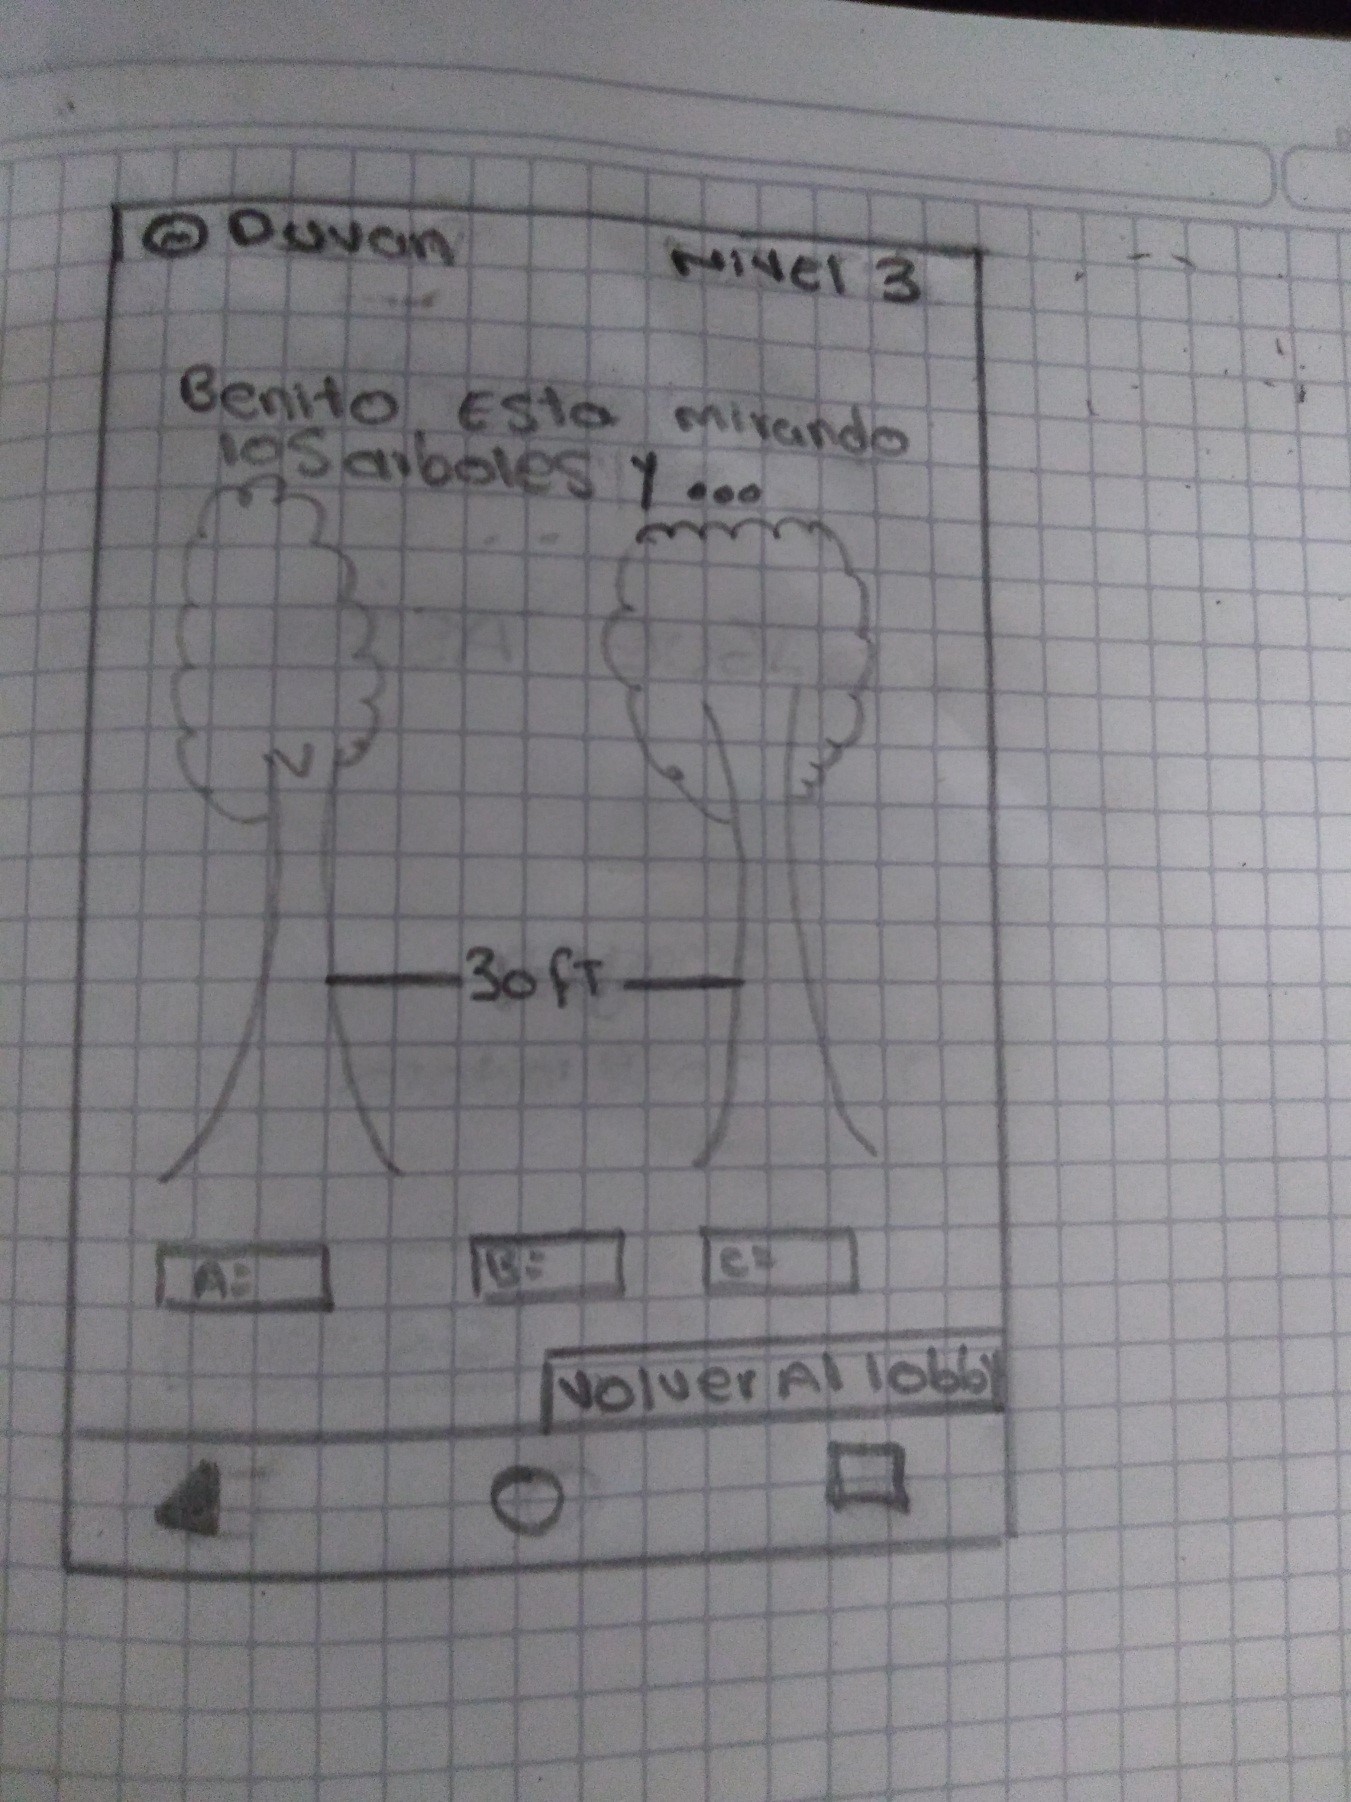 Duvan
Nivel 3
Benito Esta mirando
los arboles y ...
30 fT
A=
B=
C=
Volver Al lobby